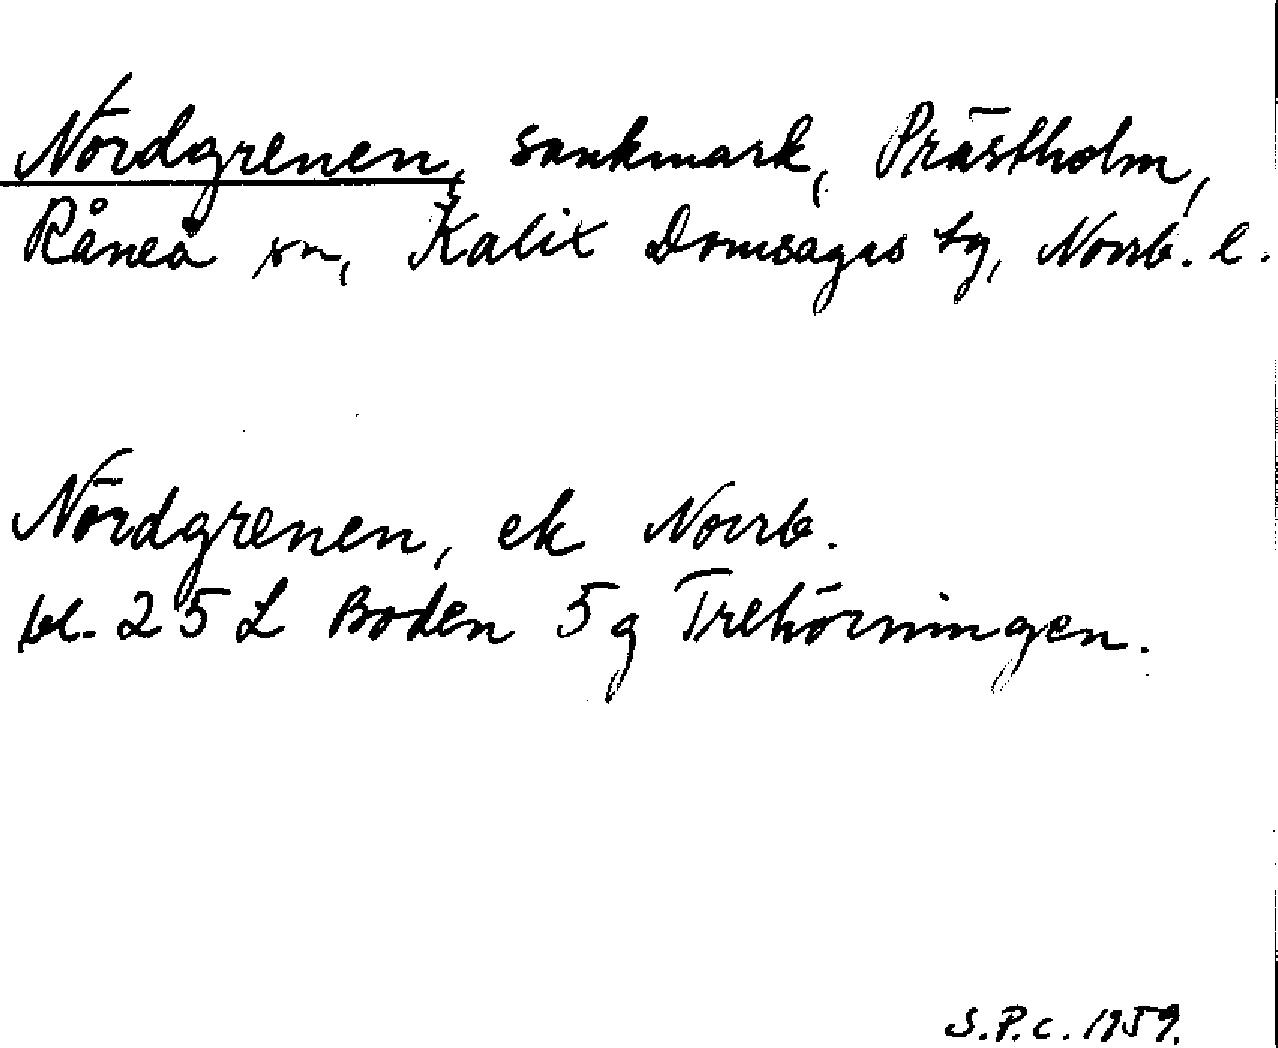 Nordgrenen, sankmark, Prästholm,
Råneå sn, Kalix Domsagas tg, Norrb. l.
Nordgrenen, ek Norrb.
bl. 25 L Boden 5g Trehörningen.
S.P.C. 1959.